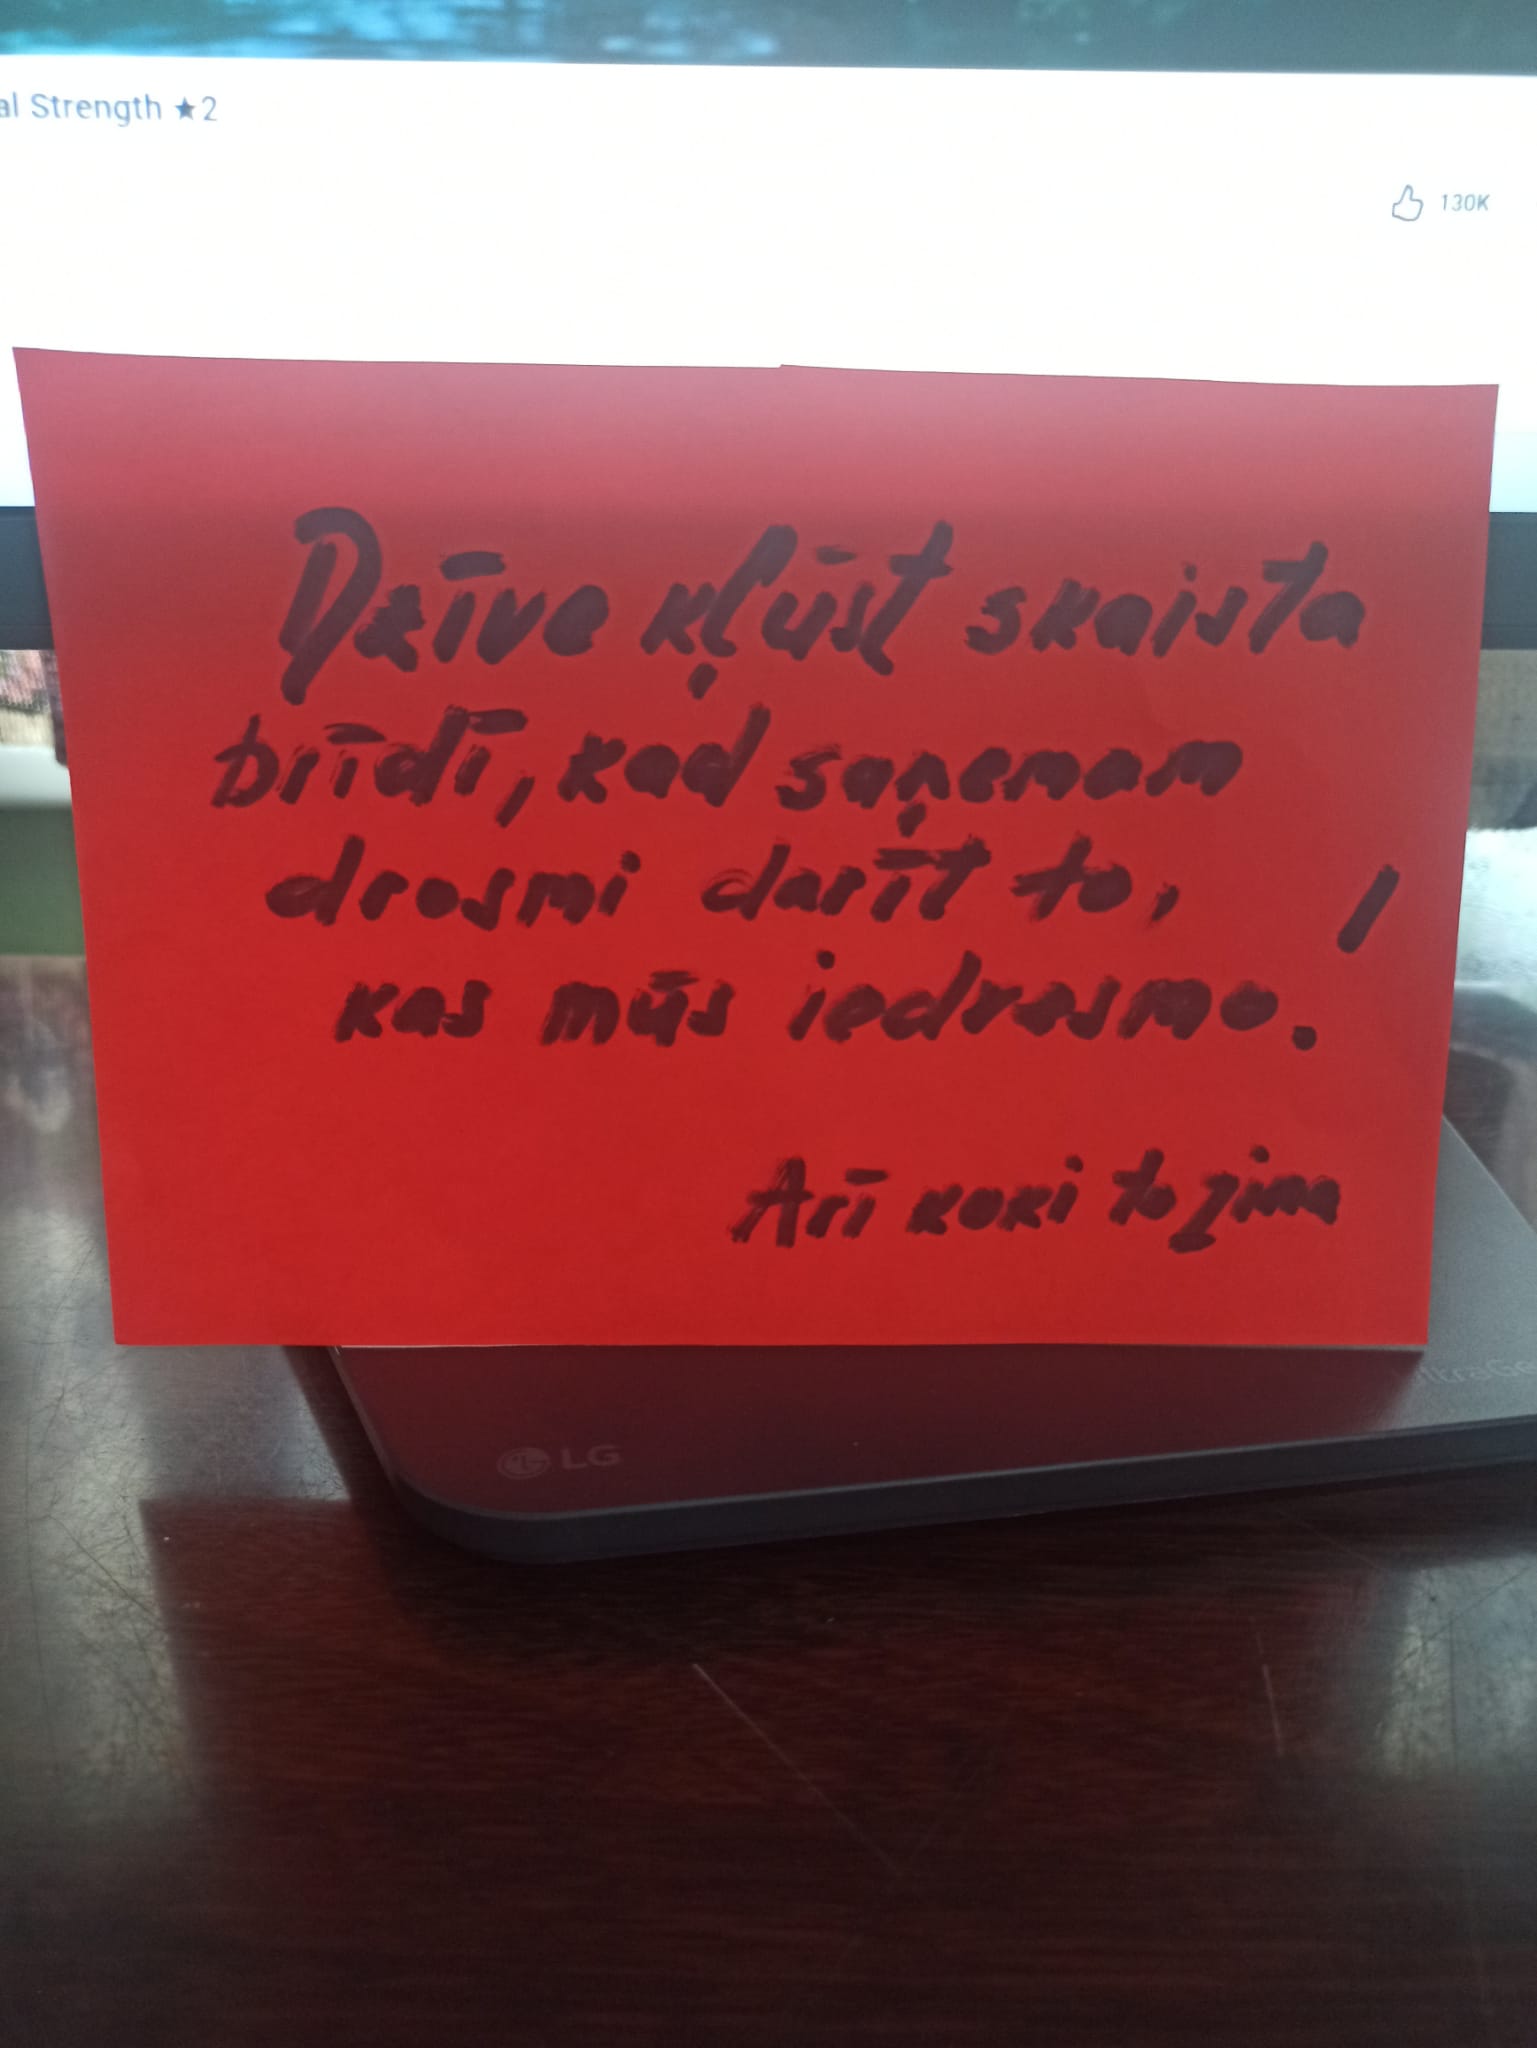 al Strength ★2
130K
Dzīve kļūst skaista
brīdī, kad saņemam
drosmi darīt to,
kas mūs iedrosmo.
Arī koki to zina
LG